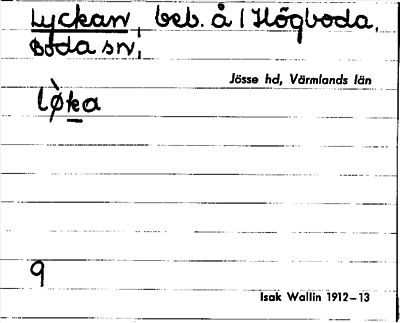 Lyckan, beb. å 1 Högboda,
Boda sn,
Jösse hd, Värmlands län
lø̀ka
9
Isak Wallin 1912–13